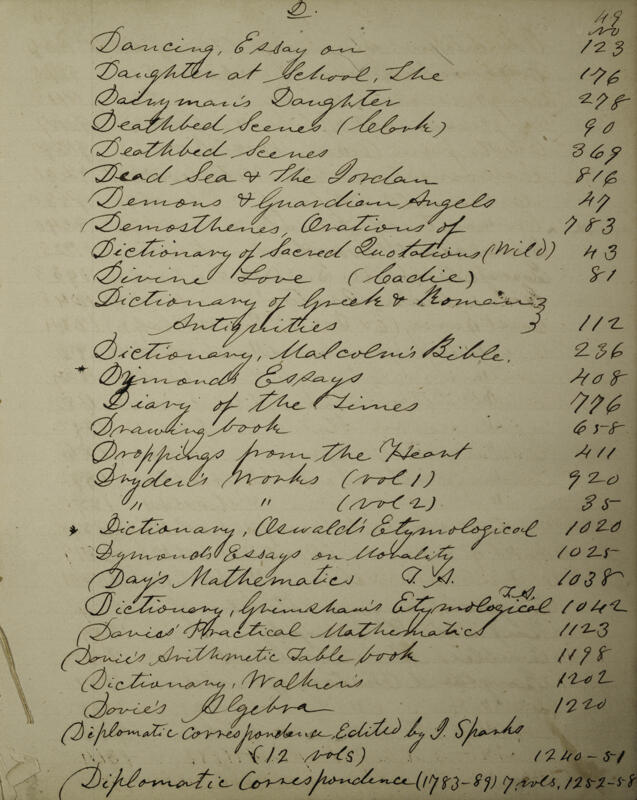 D. 49
No
Dancing, Essay on 123
Daughter at School, The 176
Dairyman's Daughter 278
Deathbed Scenes (Clark) 90
Deathbed Scenes 369
Dead Sea & The Jordan 816
Demons & Guardian Angels 47
Demosthenes, Orations of 783
Dictionary of Sacred Quotations (Wild) 43
Divine Love (Eadie) 81
Dictionary of Greek & Roman }
Antiquities } 112
Dictionary, Malcolm's Bible. 236
Dymonds Essays 408
Diary of the Times 776
Drawing book 658
Droppings from the Heart 411
Dryden's Works (vol 1) 920
" " (vol 2) 35
Dictionary, Oswald's Etymological 1020
Dymonds Essays on Morality 1025
Day's Mathematics T. A. 1038
Dictionary, Grimshaw's Etymological 1042
Davies' Practical Mathematics 1123
Davie's Arithmetic Table book 1198
Dictionary, Walker's 1202
Davie's Algebra 1220
Diplomatic Correspondence Edited by J. Sparks
(12 vols) 1240-51
Diplomatic Correspondence (1783-89) 7 vols. 1252-58